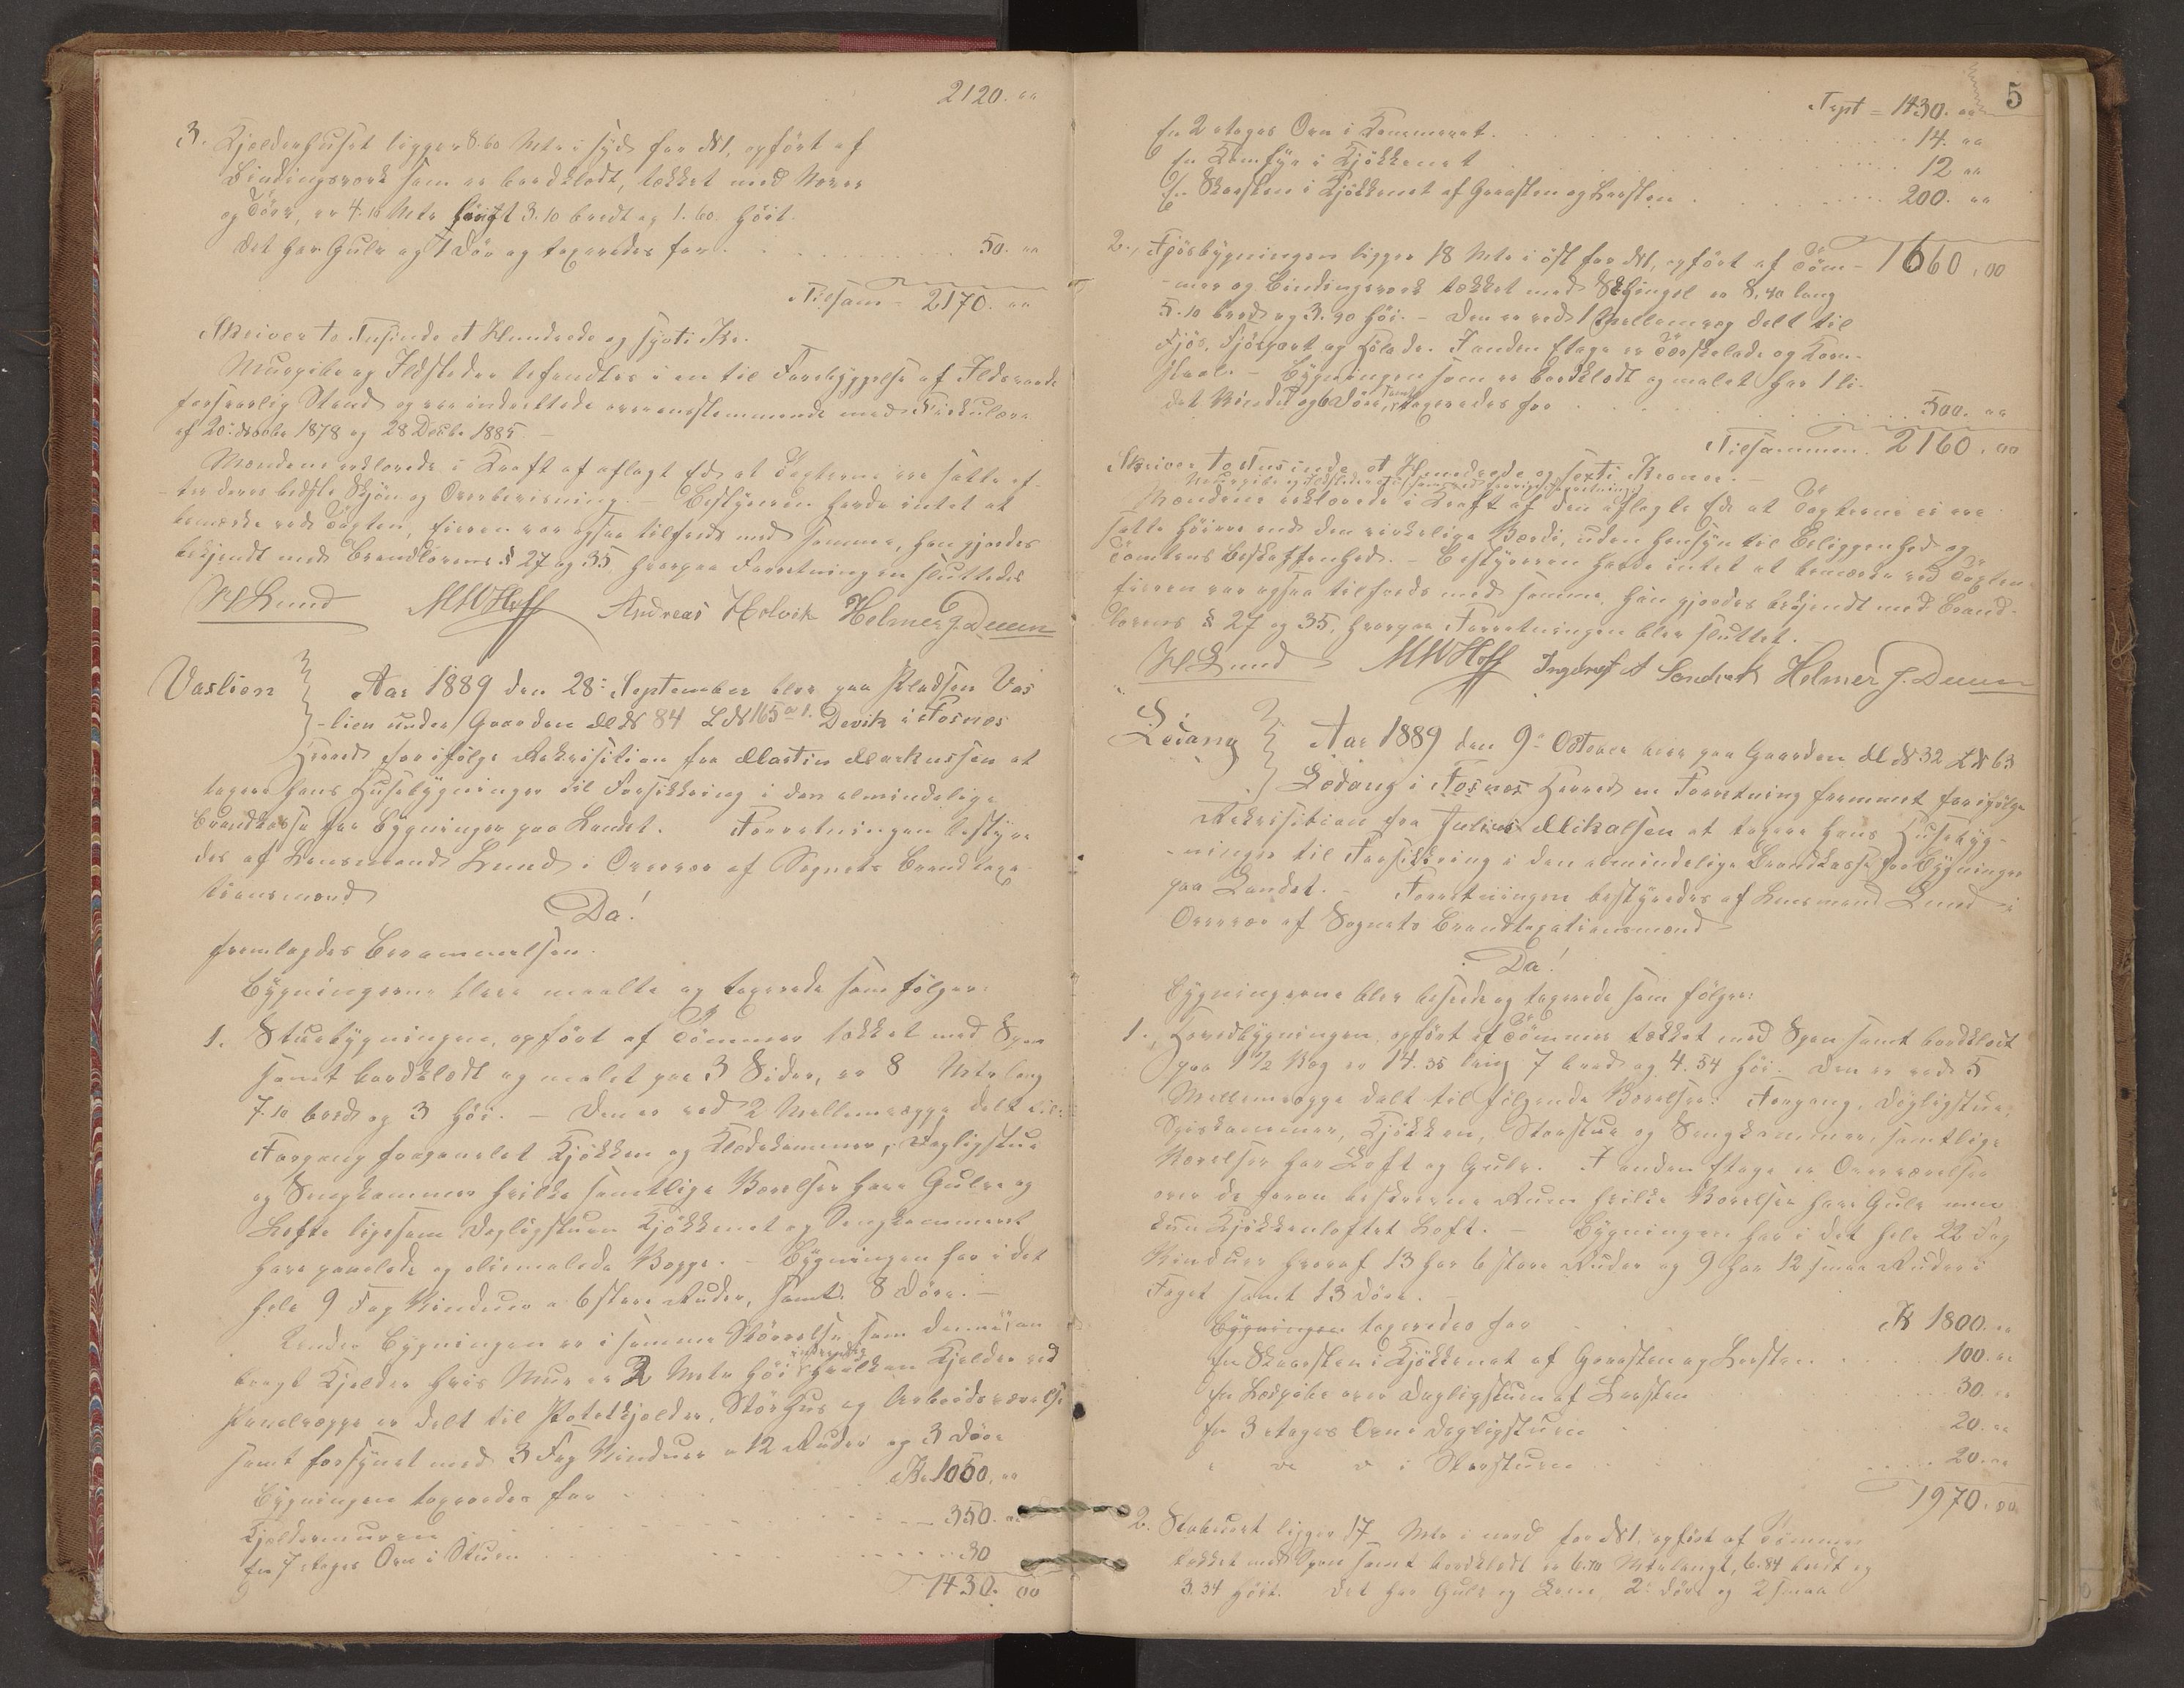 2120. "
3. Kjelderhuset ligger 8.60 Mtr i syd for No 1, opført af
Bindingsverk som er bordklædt, tækket med Næver
og Törv, er 4.10 Mtr langt 3.10 bredt og 1.60 höit.
Det har Gulv og 1 Dör og taxeredes for . . . 50. "
Tilsam = 2170. "
Skriver to Tusinde et Hundrede og sytti Kr.
Murpibe og Ildsteder befandtes i en til Forebyggelse af Ildsvaade
forsvarlig Stand og var indrettede overensstemmende med Cirkulære
af 20de Novbr 1878 og 28 Decbr 1885. —
Mændene erklærede i Kraft af aflagt Ed, at Taxterne var satte ef-
ter deres bedste Skjøn og Overbevisning. — Bestyreren havde intet at
bemærke ved Taxten, Eieren var ogsaa tilfreds med samme, han gjordes
bekjendt med Brandlovens § 27 og 35, hvorpaa Forretningen sluttedes
Lund MWHoff Andreas Holvik Helmer J. Duun
Vaslien Aar 1889 den 28de September blev paa Pladsen Vas
-lien under Gaarden M No 84 L No 165 a 1. Devik i Fosnes
Herred for ifölge Rekvisition fra Martin Markussen at
taxere hans Husebygninger til Forsikkring i den almindelige
Brandkasse for Bygninger paa Landet. Forretningen bestyre
des af Lensmand Lund i Overvær af Sognets Brandtaxa-
tionsmænd
Da!
fremlagdes Berammelsen.
Bygningerne bleve maalte og taxerede som fölger:
1. Stuebygningen, opfört af Tömmer tækket med Spon
samt bordklædt og malet paa 3 Sider, er 8 Mtr lang
7.10 bred og 3 höi. — Den er ved 2 Mellemvægge delt til:
Forgang Kjökken og Klædekammer, Dagligstue
og Sengkammer hvilke samtlige Værelser have Gulve og
Lofte ligesom Dagligstuen Kjökkenet og Sengkammeret
have panelede og oliemalede Vægge. — Bygningen har i det
hele 9 Fag Vinduer a 6 store Ruder, samt 8 Döre. —
Under Bygningen er i samme Störrelse som denne an
bragt Kjelder hvis Mur er 2 Mtr höi hvilken Kjelder ved
Panelvægge er delt til Potetkjelder, Störhus og Arbeidsværelse
samt forsynet med 3 Fag Vinduer a 12 Ruder og 3 Döre
Bygningen taxeredes for . . . Kr 1050. "
Kjeldermuren . . . 350. "
En 7 etages Ovn i Stuen . . . 30
1430. 00
5
Trpt = 1430. "
En 2 etages Ovn i Kammeret . . . 14. "
En Komfyr i Kjökkenet . . . 12 "
En Skorsten i Kjökkenet af Graasten og Lersten . . . 200. "
2., Fjösbygningen ligger 18 Mtr i öst for No 1, opfört af Töm- 1660, 00
-mer og Bindingsverk tækket med Skingel er 8.40 lang
5.10 bred og 3.90 höi. — Den er ved 1 Mellemvæg delt til
Fjös, Fjösport og Hölade. I anden Etage er Tørskelade og Korn-
staal. — Bygningen som er bordklædt og malet har 1 li-
det Vindu og 6 Döre, taxeredes for . . . 500. "
Tilsammen 2160, 00
Skriver totusinde et Hundrede og sexti Kroner. —
Mændene erklærede i Kraft af den aflagte Ed at Taxterne ei ere
satte höiere end den virkelige Værdi, uden Hensyn til Beliggenhed og
Tomtens Beskaffenhed. — Bestyreren havde intet at bemærke ved Taxten
Eieren var ogsaa tilfreds med samme, han gjordes bekjendt med Brand-
lovens § 27 og 35, hvorpaa Forretningen blev sluttet.
Lund MWHoff Ingebregt A Sandvik Helmer J. Duun
Leäang Aar 1889 den 9de October blev paa Gaarden M No 32 L No 63
Lödang i Fosnes Herred en Forretning foretaget for ifölge
Rekvisition fra Julius Mikalsen at taxere hans Husebyg-
-ninger til Forsikkring i den almindelige Brandkasse for Bygninger
paa Landet. — Forretningen bestyredes af Lensmand Lund i
Overvær af Sognets Brandtaxationsmænd
Da!
Bygningerne blev beseede og taxerede som fölger:
1., Hovedbygningen, opfört af Tömmer tækket med Spon samt bordklædt
paa 1½ Væg er 14.35 lang 7 bred og 4.54 höi. Den er ved 5
Mellemvægge delt til fölgende Værelser: Forgang, Dagligstue,
Spiskammer, Kjökken, Storstue og Sengkammer, samtlige
Værelser har Loft og Gulv. I anden Etage er Overværelser
over de foran beskrevne Rum hvilke Værelser have Gulv men
kun Kjökkenloftet Loft. — Bygningen har i det hele 22 Fag
Vinduer hvoraf 13 har 6 store Ruder og 9 har 12 smaa Ruder i
Faget samt 13 Döre. —
Bygningen taxeredes for . . . Kr 1800. "
En Skorsten i Kjökkenet af Graasten og Lersten . . . 100. "
En Ledpibe over Dagligstuen af Lersten . . . 30. "
En 3 etages Ovn i Dagligstuen . . . 20. "
" do do i Storstuen . . . 20. "
1970. 00
2. Staburet ligger 17 Mtr i nord for No 1, opfört af Tömmer
tækket med Spon samt bordklædt er 6.70 Mtr langt, 6.84 bredt og
3.34 höit. Det har Gulv og 2 Döre og 2 smaa